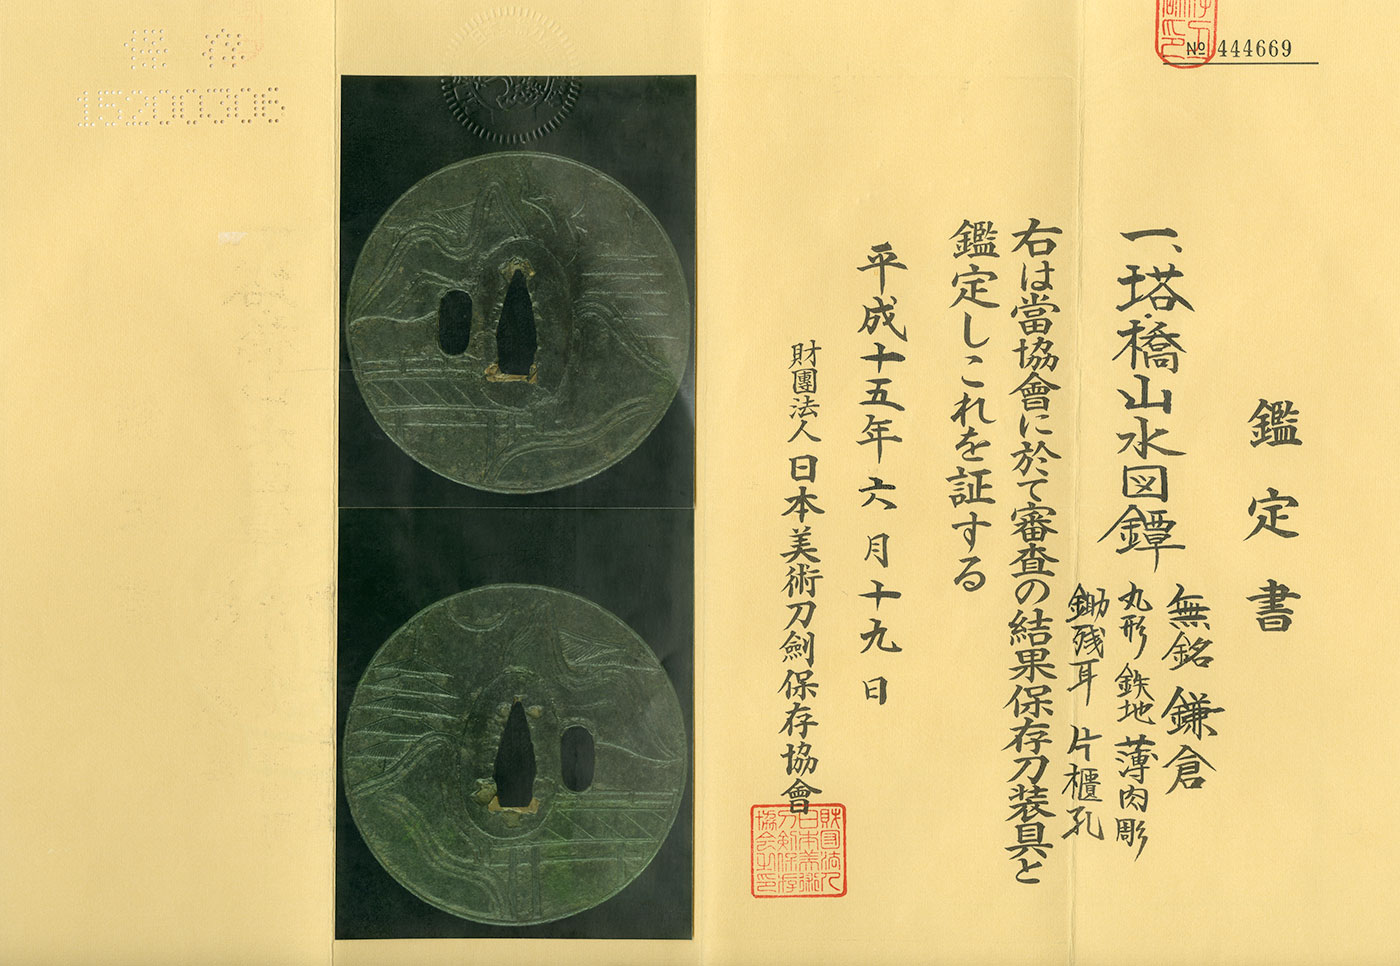 № 444669
鑑定書
一、塔・橋山水図鐔
無銘 鎌倉
丸形 鉄地 薄肉彫
鋤残耳 片櫃孔
右は當協會に於て審査の結果保存刀装具と
鑑定しこれを証する
平成十五年六月十九日
財團法人日本美術刀劍保存協會
財団法人日本美術刀剣保存協会之印
15200306